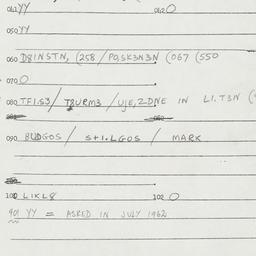 041 YY 042 O
050 YY
060 D8INSTN, (258 / PO,SK3N3N (067 (550
070 O
080 TFI.S3/ T8URM3 / UJE,2DNE IN LI.T3N (
090 BUDGOS / S+I.LGOS / MARK
100 LIKL8 102 O
901 YY = ASKED IN JULY 1962